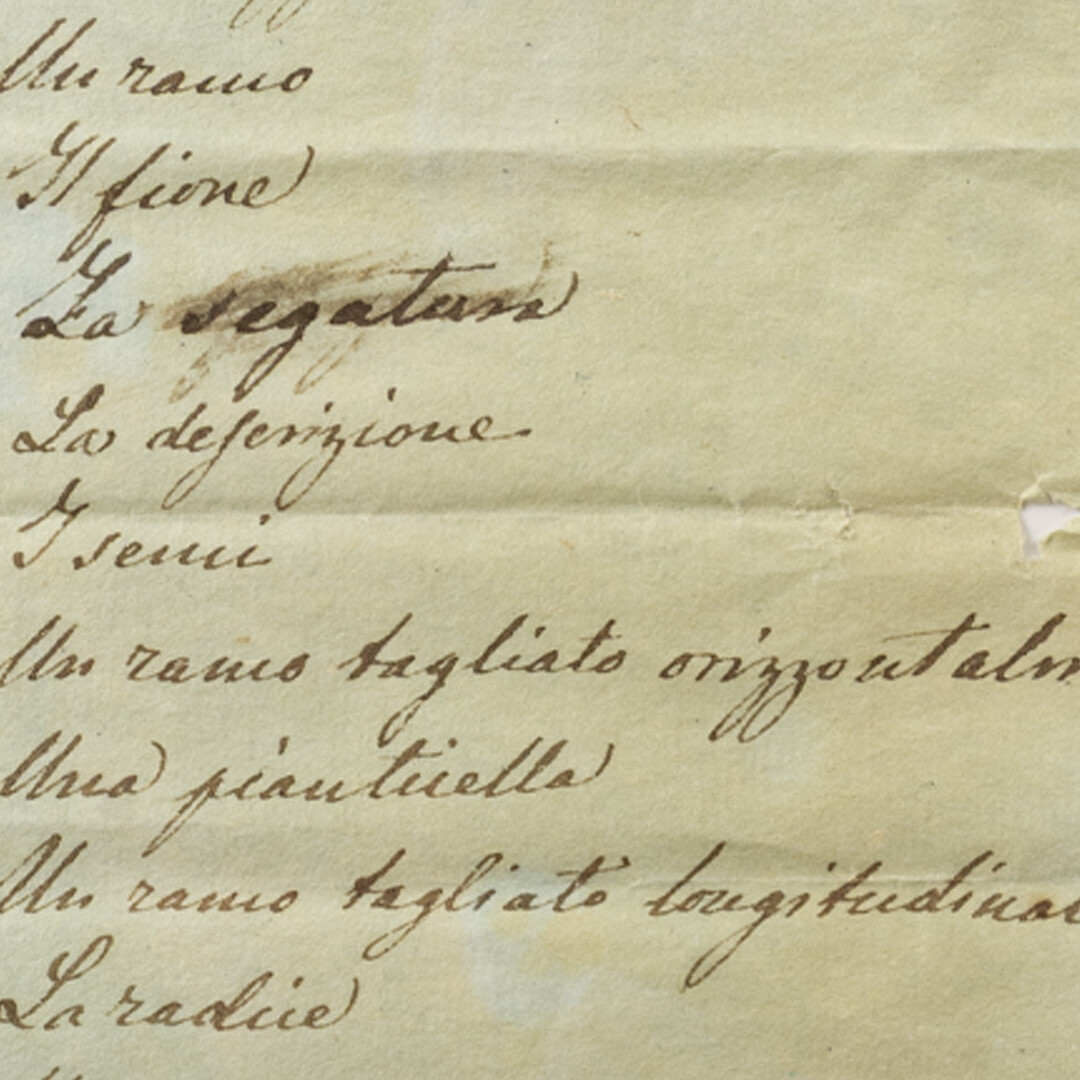 Un ramo
Il fiore
La segatura
La descrizione
I semi
Un ramo tagliato orizzontalm
Una pianticella
Un ramo tagliato longitudinal
La radice